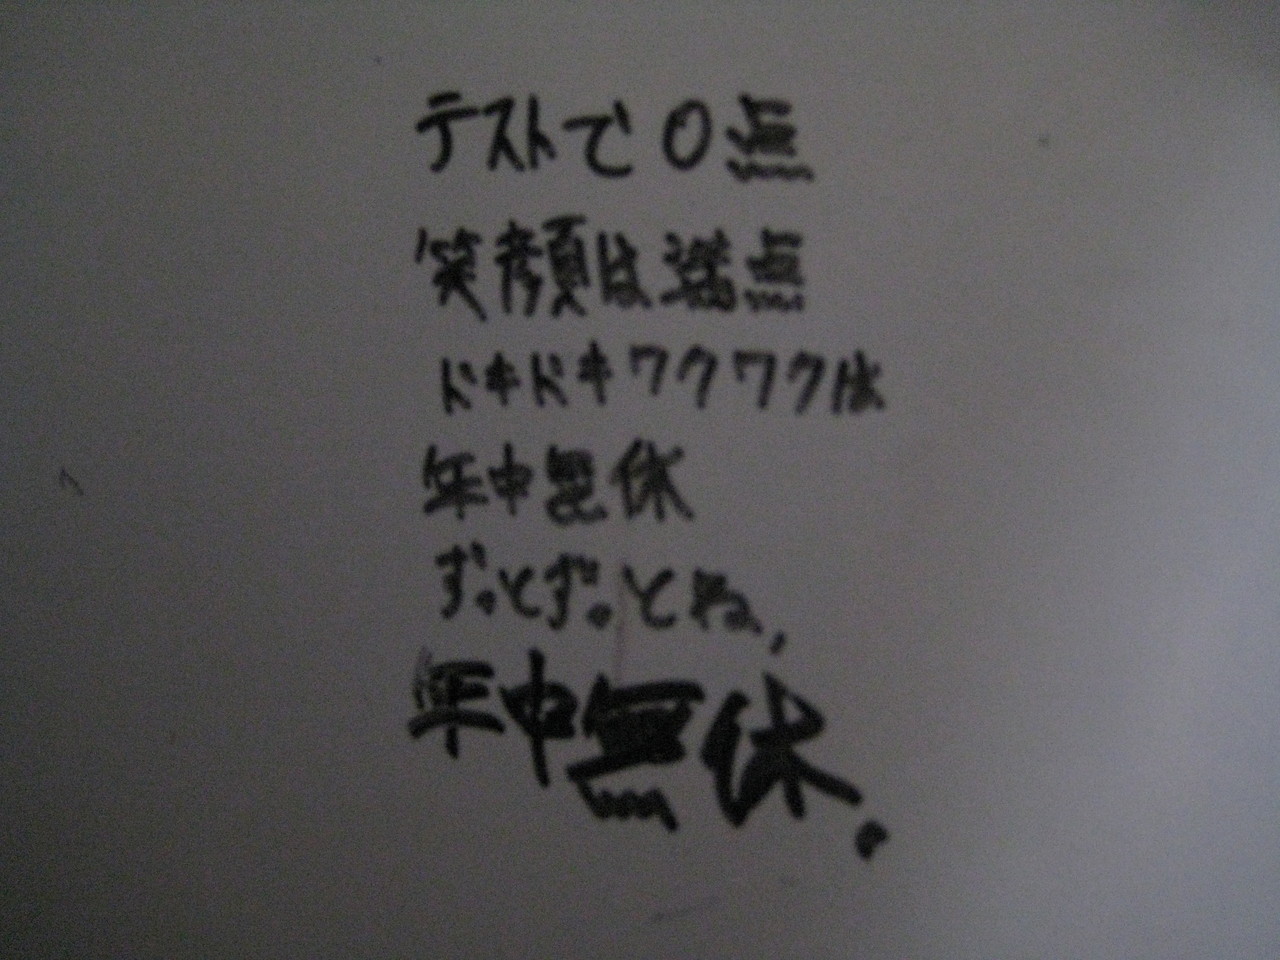 テストで0点
笑顔は満点
ドキドキワクワクは
年中無休
ずっとずっとね,
年中無休.